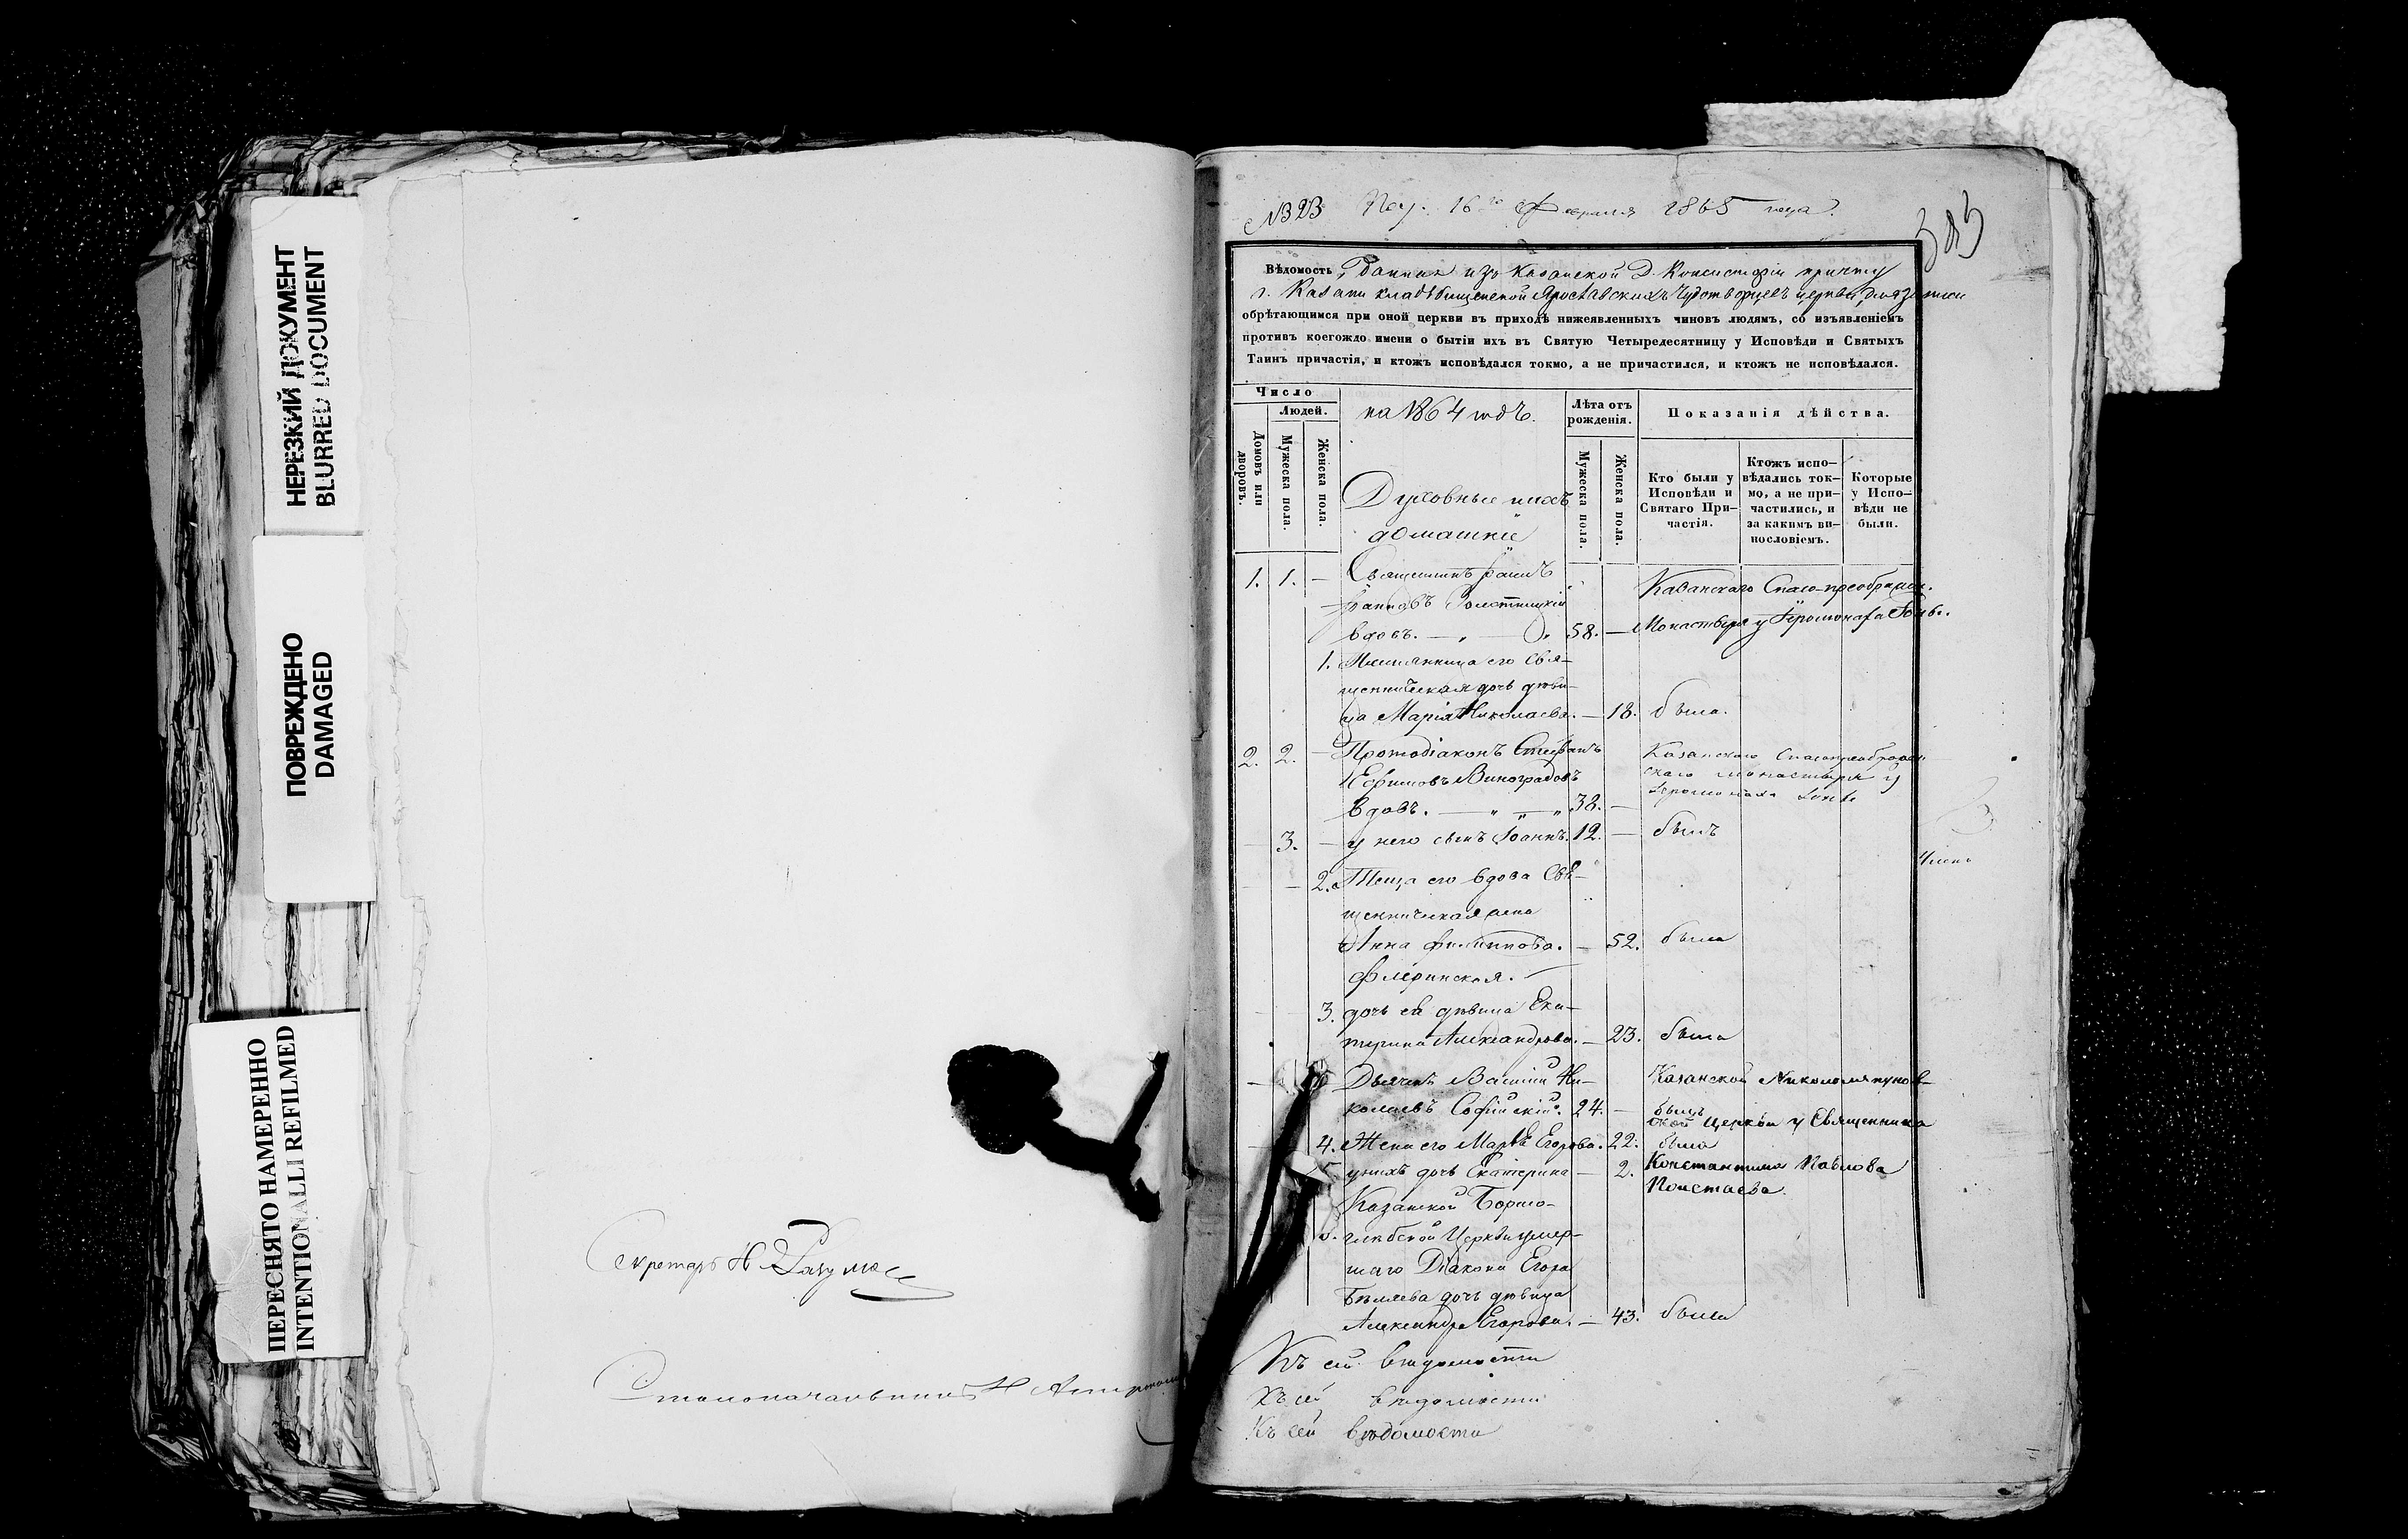 НЕРЕЗКИЙ ДОКУМЕНТ
BLURRED DOCUMENT
ПОВРЕЖДЕНО
DAMAGED
ПЕРЕСНЯТО НАМЕРЕННО
INTENTIONALLI REFILMED
Секретарь Н
Столоначальникъ Н
№ 323 16го Февраля 1865 года.
385
Вѣдомость, данная изъ Казанской Д. Консисторіи причту
г. Казани кладбищенской Ярославскихъ Чудотворцевъ церкви, для записи
обрѣтающимся при оной церкви въ приходѣ нижеявленныхъ чиновъ людямъ, со изъявленіемъ
противъ коегождо имени о бытіи ихъ въ Святую Четыредесятницу у Исповѣди и Святыхъ
Таинъ причастія, и ктожъ исповѣдался токмо, а не причастился, и ктожъ не исповѣдался.
Число
Людей.
Домовъ или дворовъ.
Мужеска пола.
Женска пола.
на 1864 годъ.
Лѣта отъ рожденія.
Мужеска пола.
Женска пола.
Показанія дѣйства.
Кто были у Исповѣди и Святаго Причастія.
Ктожъ исповѣдались токмо, а не причастились, и за какимъ винословіемъ.
Которые у Исповѣди не были.
Духовные и ихъ
домашніе
1. 1. — Священникъ Іоаннъ Казанскаго Спасо-преображен.
Іоанновъ
вдовъ. — 58. — Монастыря у Іеромонаха
1. Племянница его Свя-
щенническая дочь дѣви-
ца Марія Николаева. — 18. была.
2. 2. — Протодіаконъ Стефанъ Казанскаго Спасопреображен
Ефимовъ Виноградовъ скаго монастыря у
вдовъ. — 38. — Іеромонаха
3. — у него сынъ Іоаннъ. 12. — былъ
2. Теща его вдова Свя-
щенническая жена
Анна Филиппова. — 52. была
Флеринская. —
3. дочь ея дѣвица Ека-
терина Александрова. — 23. была
Дьячекъ Василій Ни- Казанской
колаевъ Софійскій. 24. — былъ
ской Церкви у Священника
4. Жена его Марѳа Егорова. 22. была
у нихъ дочь Екатерина — 2. Константина Павлова
Казанской Борисо-
глѣбской Церкви умер-
шаго Діакона Егора
Бѣляева дочь дѣвица
Александра Егорова. — 43. была
Къ сей вѣдомости
Къ сей вѣдомости
Къ сей вѣдомости